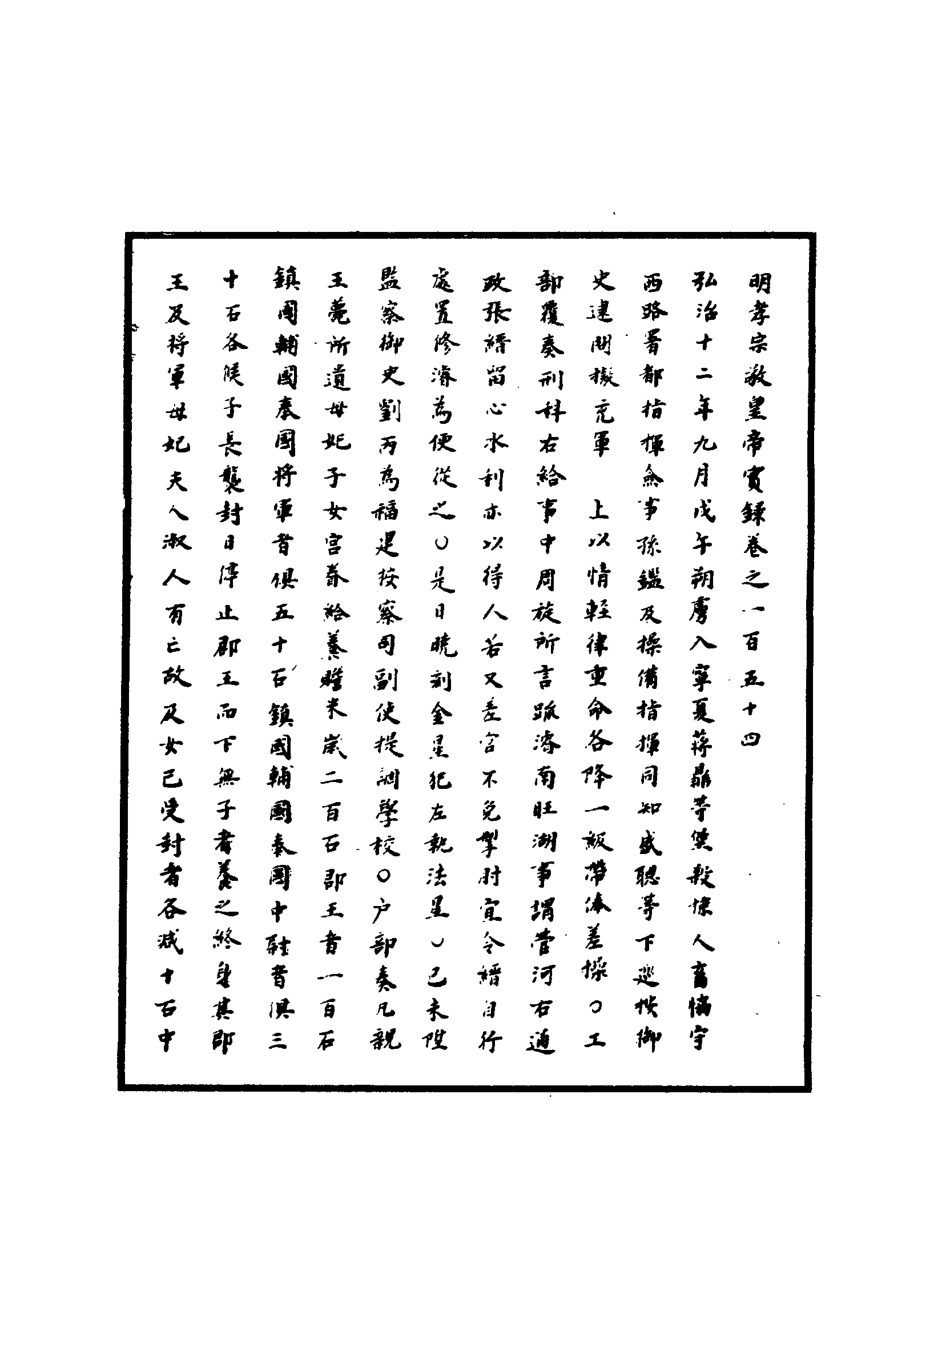 明孝宗敬皇帝實錄卷之一百五十四
弘治十二年九月戊午朔虜入寧夏蔣鼎等堡殺擄人畜協守
西路署都指揮僉事孫鑑及操備指揮同知盛聰等下巡按御
史逮問擬充軍　上以情輕律重命各降一級帶俸差操〇工
部覆奏刑科右給事中周旋所言疏濬南旺湖事謂管河右通
政張縉留心水利亦以得人若又差官不免掣肘宜令縉自行
處置修濬為便從之〇是日曉刻金星犯左執法星〇己未陞
監察御史劉丙為福建按察司副使提調學校〇戶部奏凡親
王薨所遺母妃子女宮眷給養贍米歲二百石郡王者一百石
鎮國輔國奉國將軍者俱五十石鎮國輔國奉國中尉者俱三
十石各候子長襲封日停止郡王而下無子者養之終身其郡
王及將軍母妃夫人淑人有亡故及女已受封者各減十石中